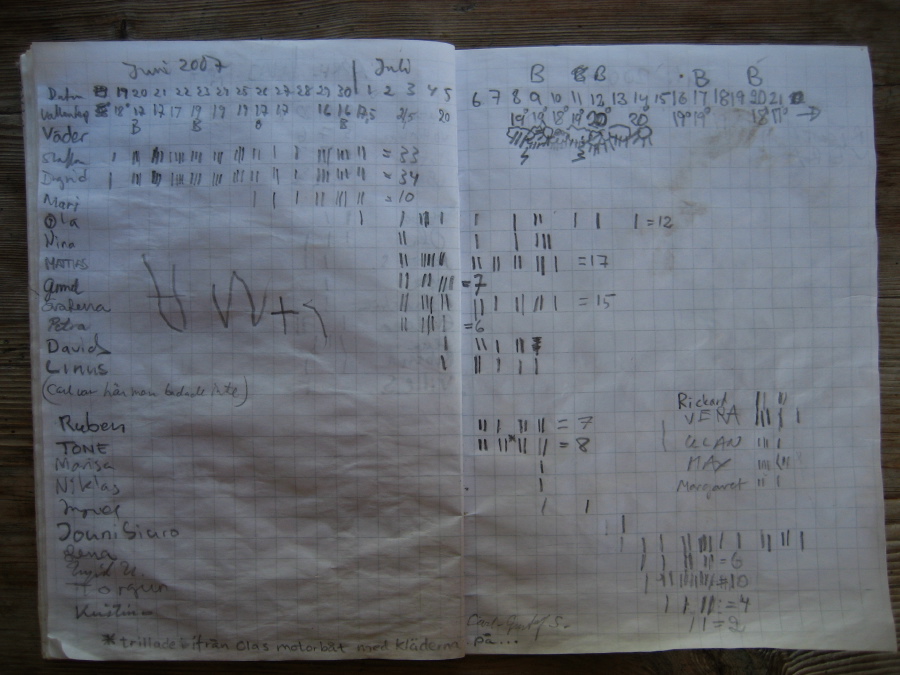 Juni 2007 Juli
B B B B B
Datum 19 20 21 22 23 24 25 26 27 28 29 30 1 2 3 4 5 6 7 8 9 10 11 12 13 14 15 16 17 18 19 20 21
18° 17 17 17 19 19 19 17 17 16 16 17,5 20 19° 19° 18° 19° 20° 20 19° 19° 18° 17° →
B B B
Väder
Staffan = 33
Ingrid = 34
Mari = 10
Ola = 12
Nina
MATTIAS = 17
= 7
= 15
Petra = 6
David
Linus
(Carl var här man badade inte)
Rickard
Ruben = 7 VERA
TONE * = 8 ULLAN
Marisa MAX
Niklas Margaret
Jouni Siuro
Rena = 6
Torgun = 10
Kristina = 4
= 2
* trillade ifrån Olas motorbåt med kläderna på...